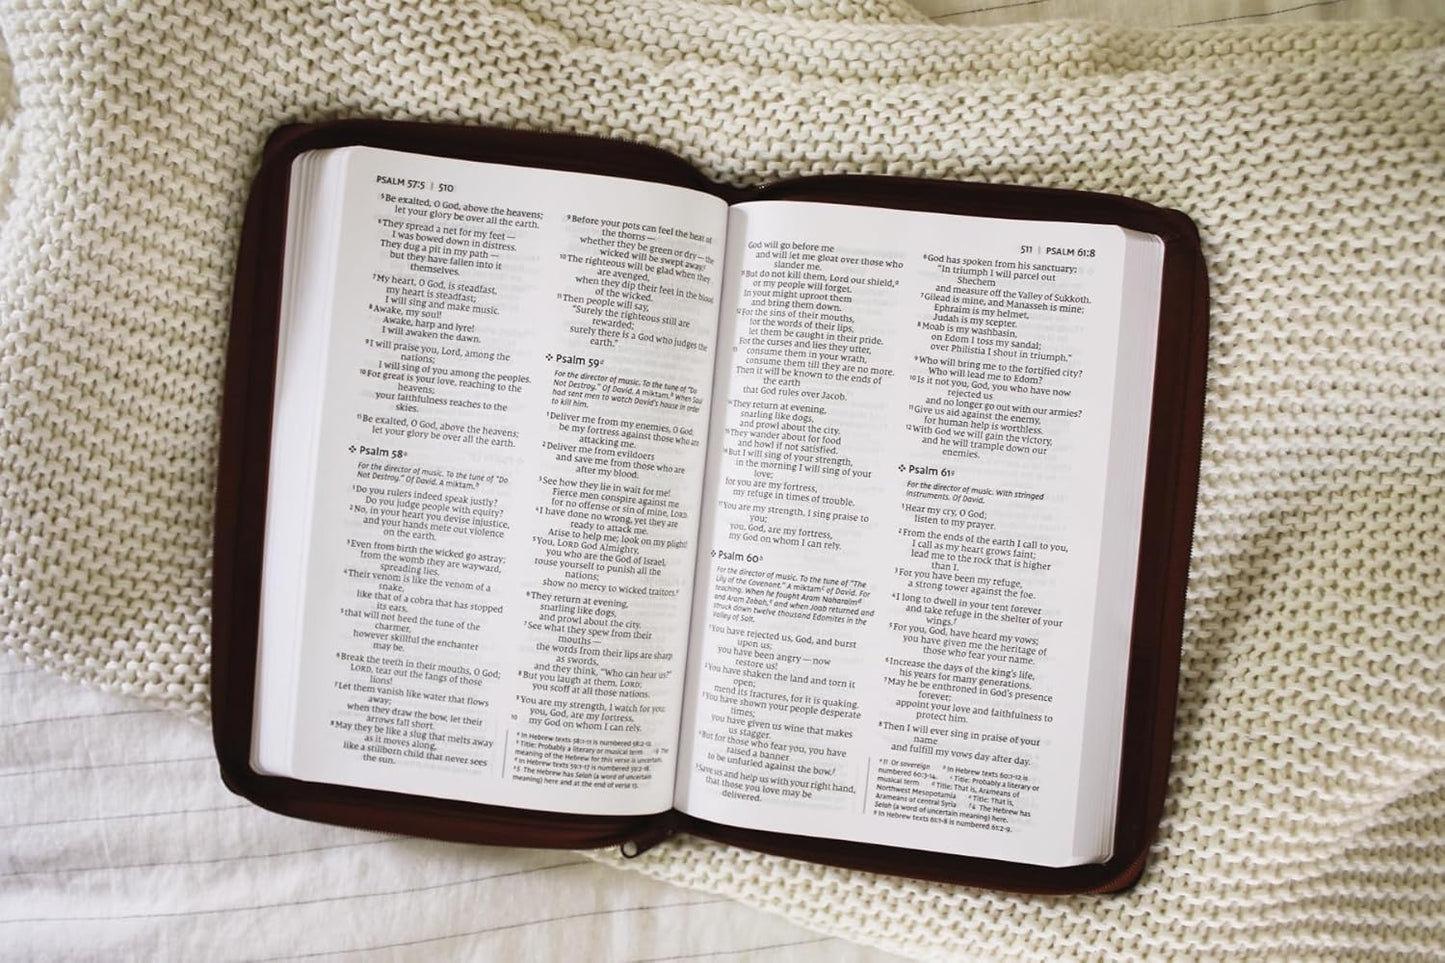 PSALM 57:5 | 510
5 Be exalted, O God, above the heavens;
let your glory be over all the earth.
6 They spread a net for my feet —
I was bowed down in distress.
They dug a pit in my path —
but they have fallen into it
themselves.
7 My heart, O God, is steadfast,
my heart is steadfast;
I will sing and make music.
8 Awake, my soul!
Awake, harp and lyre!
I will awaken the dawn.
9 I will praise you, Lord, among the
nations;
I will sing of you among the peoples.
10 For great is your love, reaching to the
heavens;
your faithfulness reaches to the
skies.
11 Be exalted, O God, above the heavens;
let your glory be over all the earth.
Psalm 58a
For the director of music. To the tune of "Do
Not Destroy." Of David. A miktam.b
1 Do you rulers indeed speak justly?
Do you judge people with equity?
2 No, in your heart you devise injustice,
and your hands mete out violence
on the earth.
3 Even from birth the wicked go astray;
from the womb they are wayward,
spreading lies.
4 Their venom is like the venom of a
snake,
like that of a cobra that has stopped
its ears,
5 that will not heed the tune of the
charmer,
however skillful the enchanter
may be.
6 Break the teeth in their mouths, O God;
LORD, tear out the fangs of those
lions!
7 Let them vanish like water that flows
away;
when they draw the bow, let their
arrows fall short.
8 May they be like a slug that melts away
as it moves along,
like a stillborn child that never sees
the sun.
9 Before your pots can feel the heat of
the thorns —
whether they be green or dry — the
wicked will be swept away.
10 The righteous will be glad when they
are avenged,
when they dip their feet in the blood
of the wicked.
11 Then people will say,
"Surely the righteous still are
rewarded;
surely there is a God who judges the
earth."
Psalm 59d
For the director of music. To the tune of "Do
Not Destroy." Of David. A miktam.b When Saul
had sent men to watch David's house in order
to kill him.
1 Deliver me from my enemies, O God;
be my fortress against those who are
attacking me.
2 Deliver me from evildoers
and save me from those who are
after my blood.
3 See how they lie in wait for me!
Fierce men conspire against me
for no offense or sin of mine, LORD.
4 I have done no wrong, yet they are
ready to attack me.
Arise to help me; look on my plight!
5 You, LORD God Almighty,
you who are the God of Israel,
rouse yourself to punish all the
nations;
show no mercy to wicked traitors.e
6 They return at evening,
snarling like dogs,
and prowl about the city.
7 See what they spew from their
mouths —
the words from their lips are sharp
as swords,
and they think, "Who can hear us?"
8 But you laugh at them, LORD;
you scoff at all those nations.
9 You are my strength, I watch for you;
you, God, are my fortress,
10 my God on whom I can rely.
a In Hebrew texts 58:1-11 is numbered 58:2-12.
b Title: Probably a literary or musical term c 9 The
meaning of the Hebrew for this verse is uncertain.
d In Hebrew texts 59:1-17 is numbered 59:2-18.
e 5 The Hebrew has Selah (a word of uncertain
meaning) here and at the end of verse 13.
511 | PSALM 61:8
God will go before me
and will let me gloat over those who
slander me.
11 But do not kill them, Lord our shield,a
or my people will forget.
In your might uproot them
and bring them down.
12 For the sins of their mouths,
for the words of their lips,
let them be caught in their pride.
For the curses and lies they utter,
13 consume them in your wrath,
consume them till they are no more.
Then it will be known to the ends of
the earth
that God rules over Jacob.
14 They return at evening,
snarling like dogs,
and prowl about the city.
15 They wander about for food
and howl if not satisfied.
16 But I will sing of your strength,
in the morning I will sing of your
love;
for you are my fortress,
my refuge in times of trouble.
17 You are my strength, I sing praise to
you;
you, God, are my fortress,
my God on whom I can rely.
Psalm 60b
For the director of music. To the tune of "The
Lily of the Covenant." A miktamc of David. For
teaching. When he fought Aram Naharaimd
and Aram Zobah,e and when Joab returned and
struck down twelve thousand Edomites in the
Valley of Salt.
1 You have rejected us, God, and burst
upon us;
you have been angry — now
restore us!
2 You have shaken the land and torn it
open;
mend its fractures, for it is quaking.
3 You have shown your people desperate
times;
you have given us wine that makes
us stagger.
4 But for those who fear you, you have
raised a banner
to be unfurled against the bow.f
5 Save us and help us with your right hand,
that those you love may be
delivered.
6 God has spoken from his sanctuary:
"In triumph I will parcel out
Shechem
and measure off the Valley of Sukkoth.
7 Gilead is mine, and Manasseh is mine;
Ephraim is my helmet,
Judah is my scepter.
8 Moab is my washbasin,
on Edom I toss my sandal;
over Philistia I shout in triumph."
9 Who will bring me to the fortified city?
Who will lead me to Edom?
10 Is it not you, God, you who have now
rejected us
and no longer go out with our armies?
11 Give us aid against the enemy,
for human help is worthless.
12 With God we will gain the victory,
and he will trample down our
enemies.
Psalm 61g
For the director of music. With stringed
instruments. Of David.
1 Hear my cry, O God;
listen to my prayer.
2 From the ends of the earth I call to you,
I call as my heart grows faint;
lead me to the rock that is higher
than I.
3 For you have been my refuge,
a strong tower against the foe.
4 I long to dwell in your tent forever
and take refuge in the shelter of your
wings.f
5 For you, God, have heard my vows;
you have given me the heritage of
those who fear your name.
6 Increase the days of the king's life,
his years for many generations.
7 May he be enthroned in God's presence
forever;
appoint your love and faithfulness to
protect him.
8 Then I will ever sing in praise of your
name
and fulfill my vows day after day.
a 11 Or sovereign b In Hebrew texts 60:1-12 is
numbered 60:3-14. c Title: Probably a literary or
musical term d Title: That is, Arameans of
Northwest Mesopotamia e Title: That is,
Arameans of central Syria f 4 The Hebrew has
Selah (a word of uncertain meaning) here.
g In Hebrew texts 61:1-8 is numbered 61:2-9.